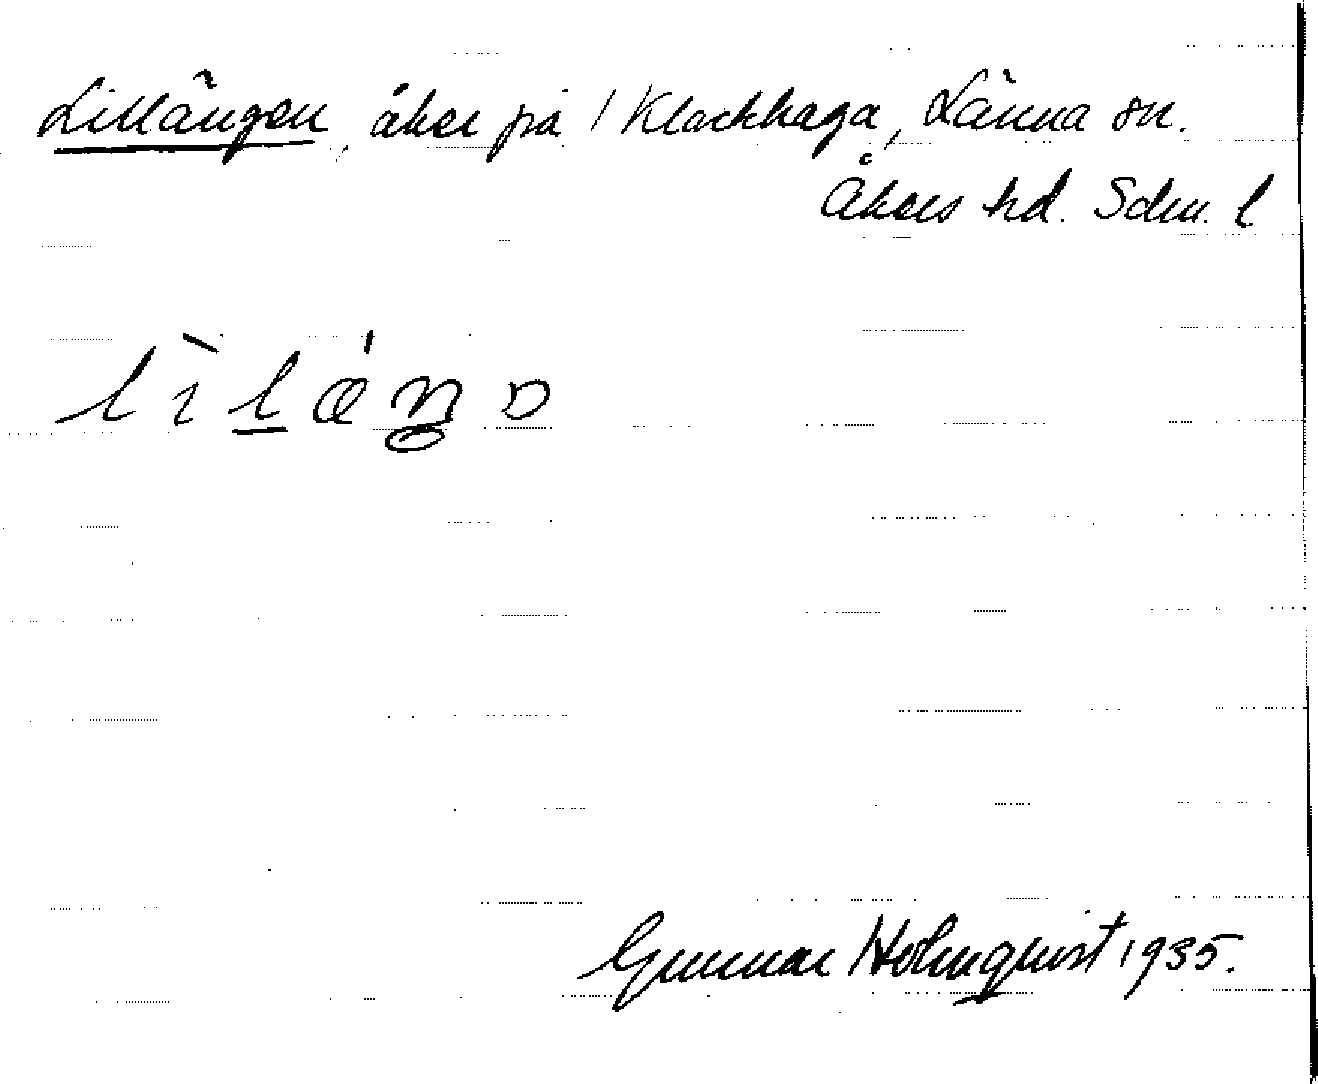 Lillängen, åker på 1 Klackhaga, Länna sn.
Åkers hd. Sdm. l
Gunnar Holmqvist 1935.